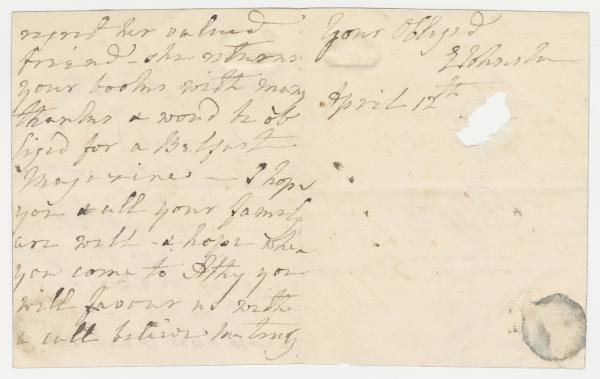 regret her valued
friend - she returns
your books with many
thanks & would be ob
liged for a Belfast
Magazine — I hope
you & all your family
are well - & hope when
you come to Athy you
will favour us with
a call believe me truly
Your Obliged
April 12th